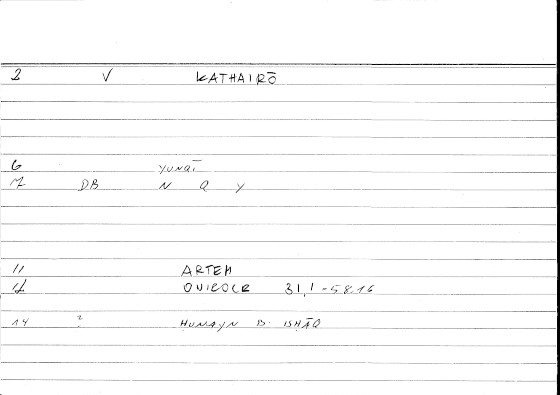 2 V KATHAIRŌ
6 YUNQĪ
7 DB N Q Y
11 ARTEM
12 ONIROCR 31,1-58.16
14 ? HUNAYN B. ISHĀQ